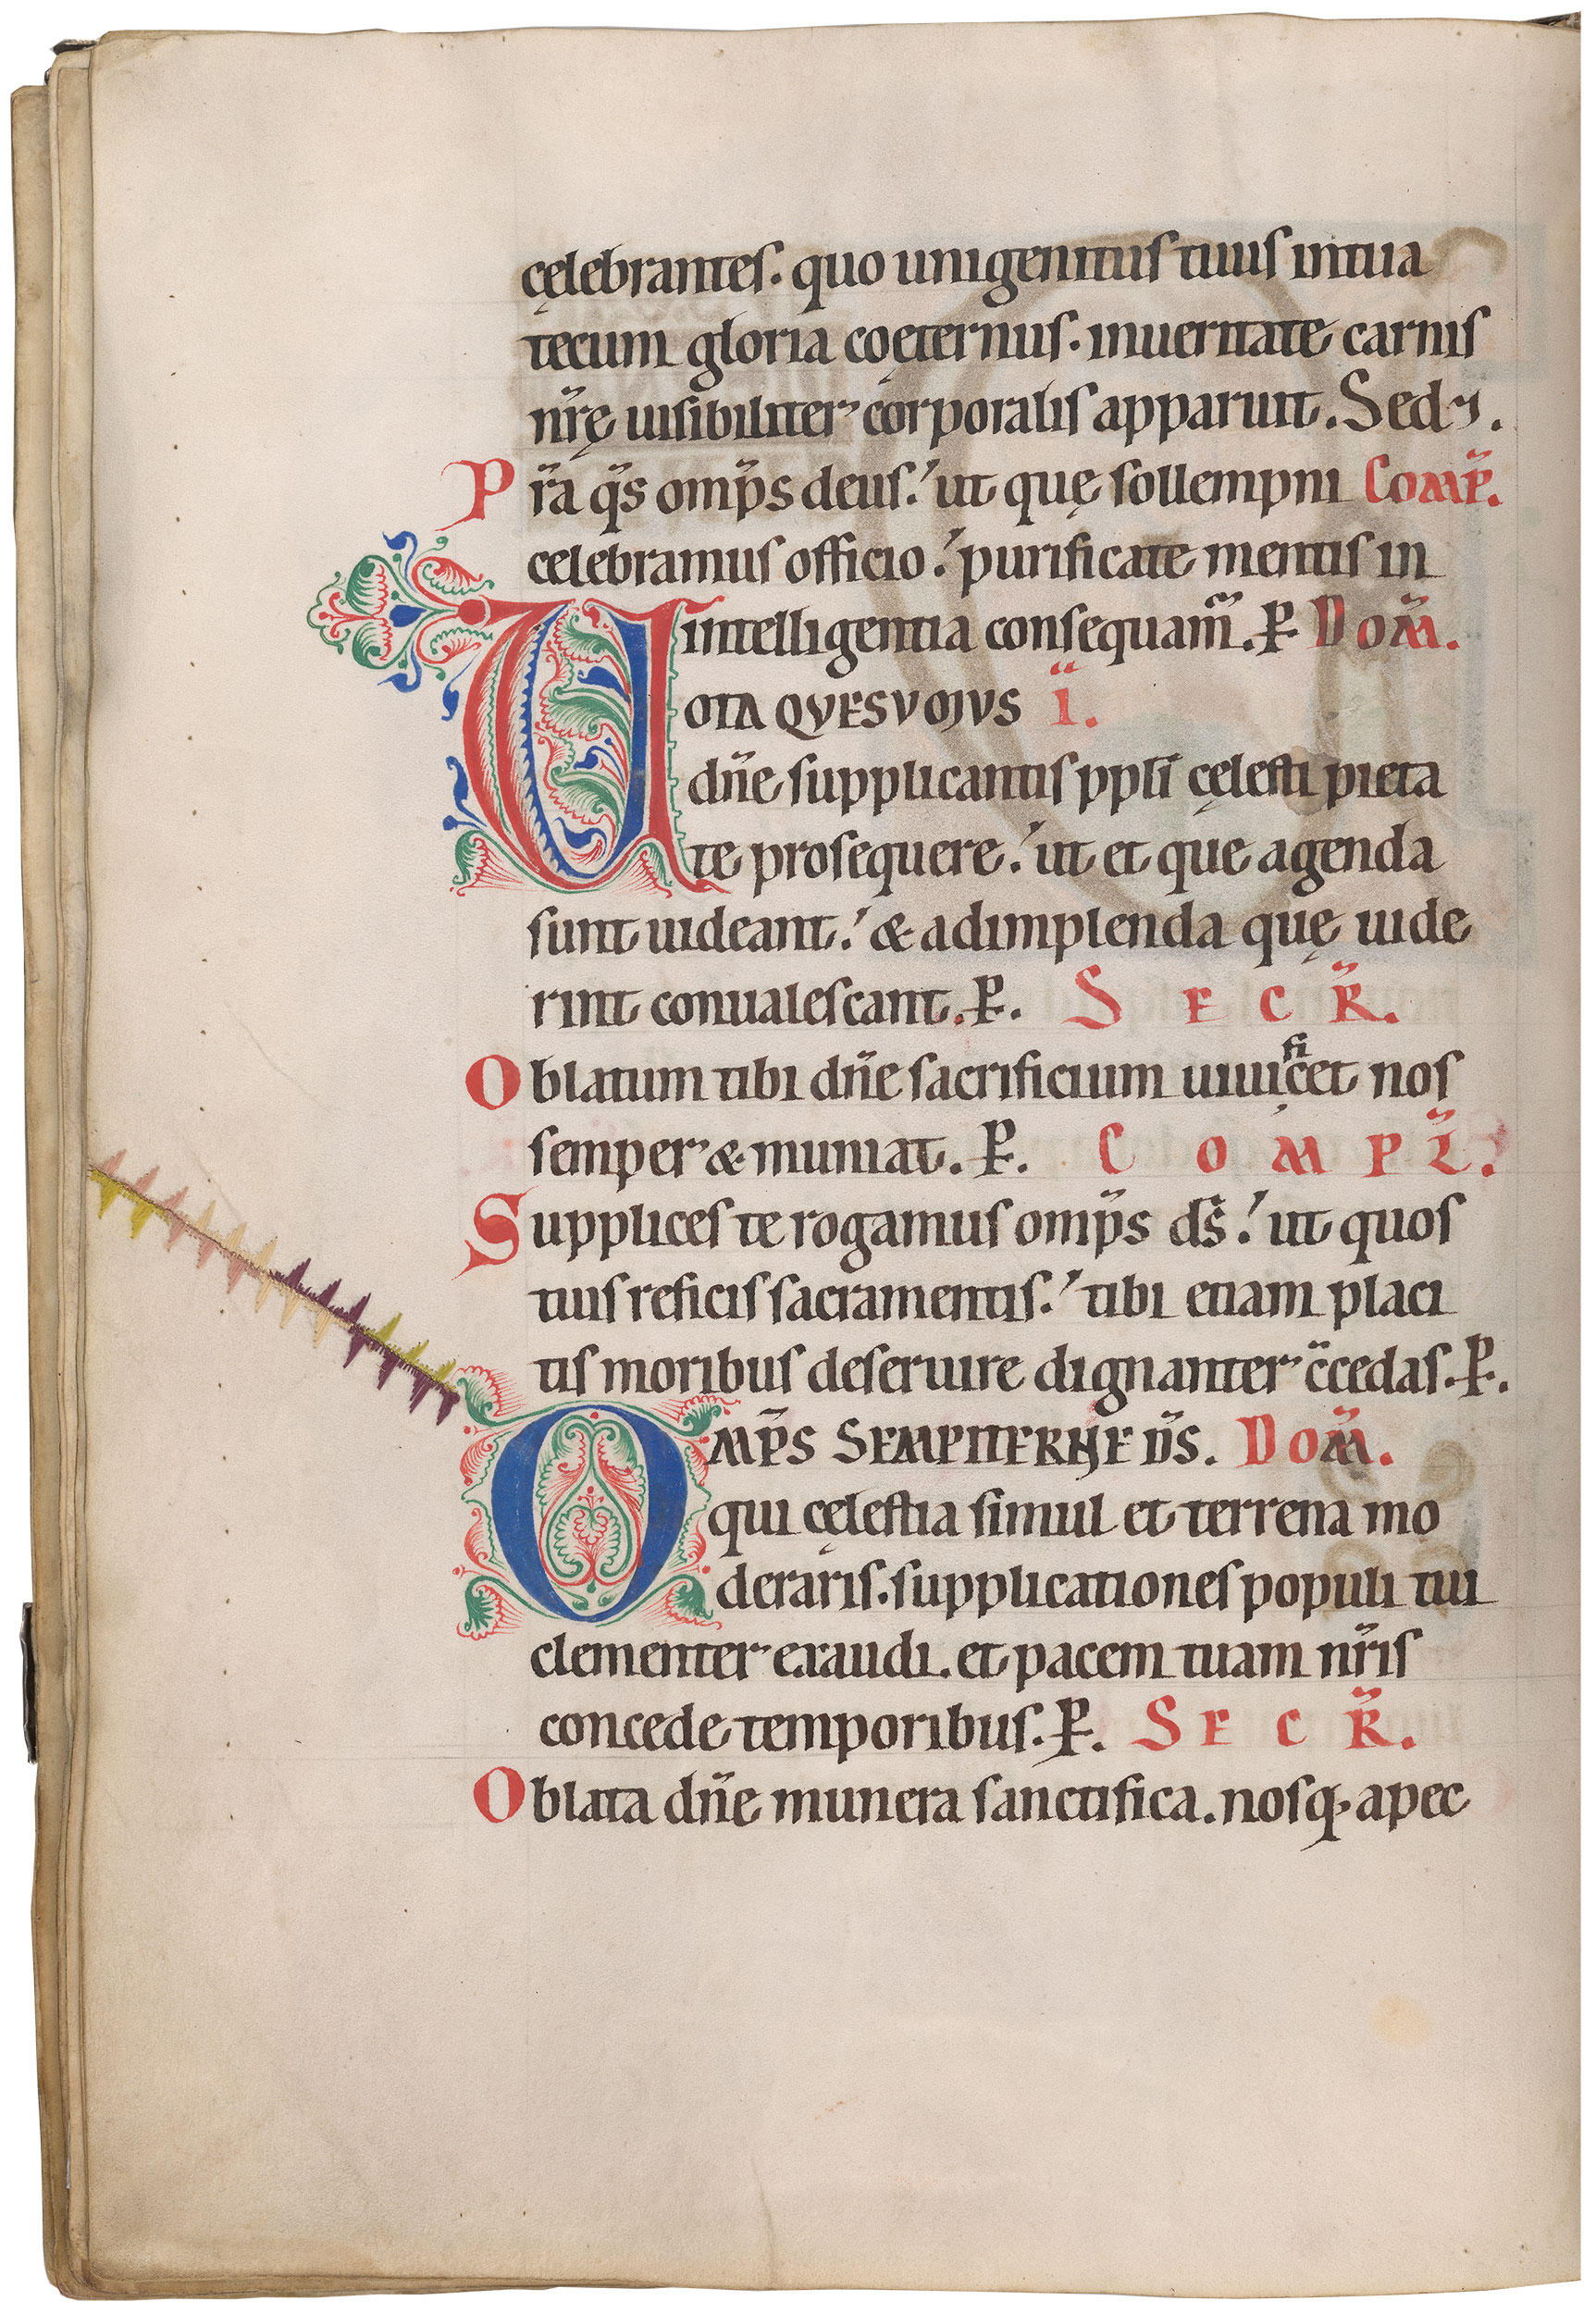 cęlebrantes. quo unigenitus tuus in tua
tecum gloria coęternus. in ueritate carnis
nr̄ę uisibiliter corporalis apparuit. Sed ⁊.
Pr̄a qs̄ omp̄s deus. ut quę sollempni Comp̄.
celebramus officio. purificate mentis in
intelligentia consequam̄. P. Dom̄.
Uota quesumus I.
dn̄e supplicantis ppli̅ cęlesti pieta
te prosequere. ut et que agenda
sunt uideant. & adimplenda quę uide
rint conualescant. P. Secr̄.
Oblatum tibi dn̄e sacrificium uiuificet nos
semper & muniat. P. Compl̄.
Supplices te rogamus omp̄s ds̄. ut quos
tuis reficis sacramentis. tibi etiam placi
tis moribus deseruire dignanter c̄cedas. P.
Omp̄s sempiterne ds̄. Dom̄.
qui cęlestia simul et terrena mo
deraris. supplicationes populi tui
clementer exaudi. et pacem tuam nr̄is
concede temporibus. P. Secr̄.
Oblata dn̄e munera sanctifica. nosq. a pec